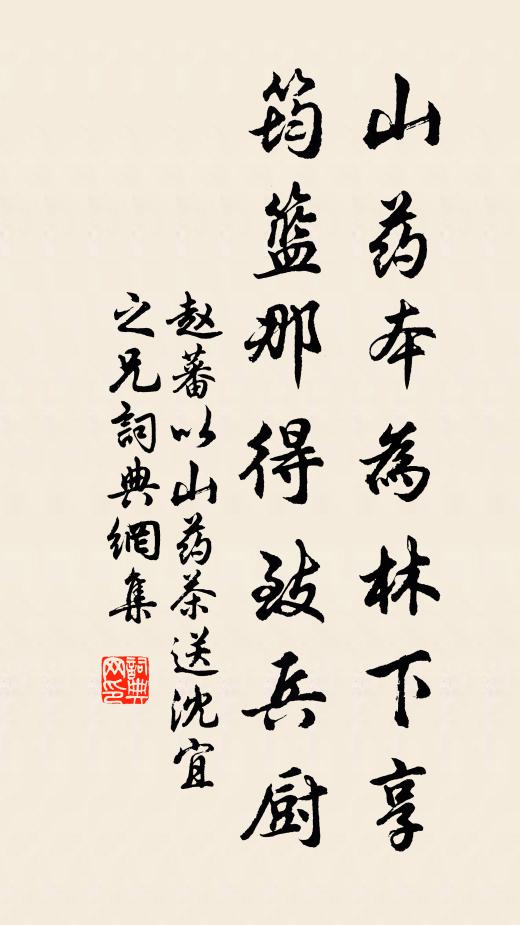 山药本為林下享
筠籃那得致兵厨
赵蕃以山药茶送沈宜
之兄詞典網集
詞典
网印